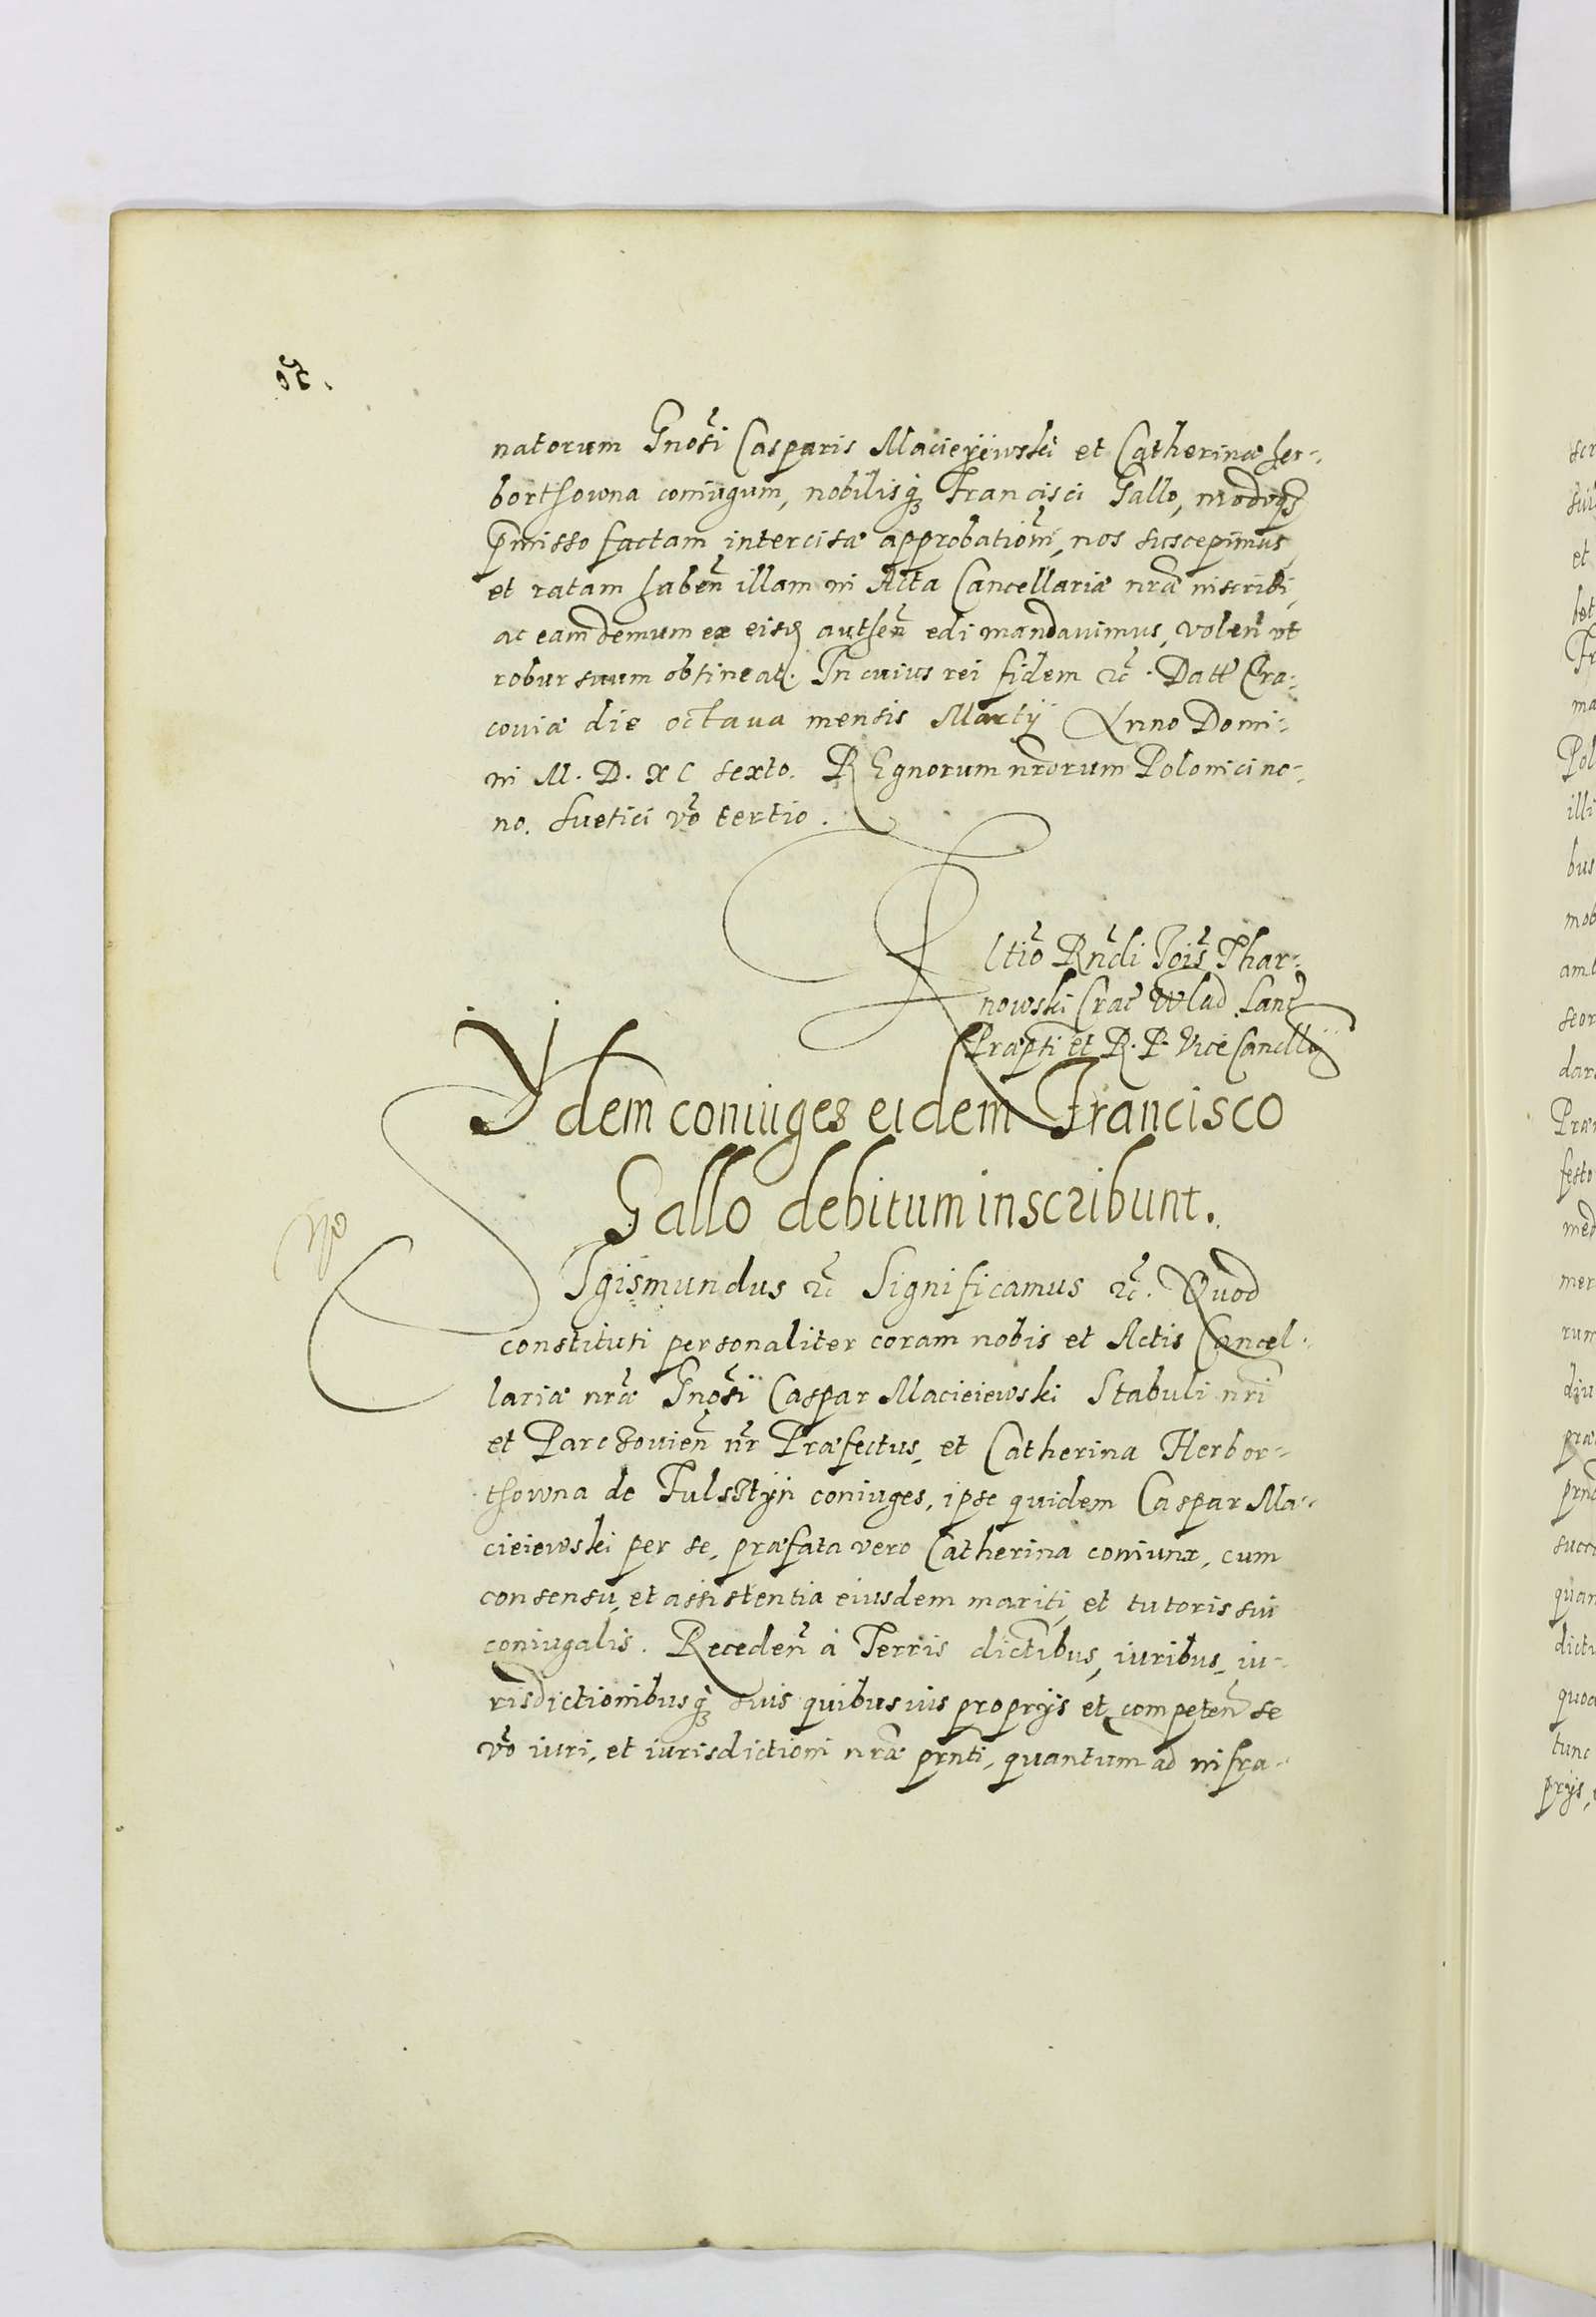 natorum Gnosi Casparis Macieyiewski et Catherinæ her-
borthowna coniugum, nobilisq̢ Francisci Gallo, modoqꝫ
p̄misso factam intercisæ approbationē, nos suscepimus
et ratam habeñ illam in Acta Cancellariæ nr̃æ inscribi,
ac eam demum ex eisd autheñ edi mandauimus, voleñ vt
robur suum obtineat. In cuius rei fidem etc̃. Datt̃ Cra-
couiæ die octaua mensis Martÿ Anno Domi-
ni M. D. XC sexto. REgnorum nr̃orum Polonici no-
no. Suetici võ tertio.
Rltiõ Rñdi Jois̃ Thar-
nowski Crac̃ Wlad. Lanc̃
Præpti et R. P. Vice Cancllÿ
Ydem coniuges eidem Francisco
Gallo debitum inscribunt.
SIgismundus etc̃ Significamus etc̃. Quod
constituti personaliter coram nobis et Actis Cancel-
lariæ nr̃æ Gnosi Caspar Macieiewski Stabuli nr̃i
et Parczouieñ nr̃ Præfectus, et Catherina Herbor-
thowna de Fulsstÿn coniuges, ipse quidem Caspar Ma-
cieiewski per se, præfata vero Catherina coniunx, cum
consensu, et assistentia eiusdem mariti, et tutoris sui
coniugalis. Recedeñ à Terris dictibus, iuribus, iu-
risdictionibusq̢ suis quibusuis proprÿs et competeñ se
võ iuri, et iurisdictioni nr̃æ prñti, quantum ad infra-